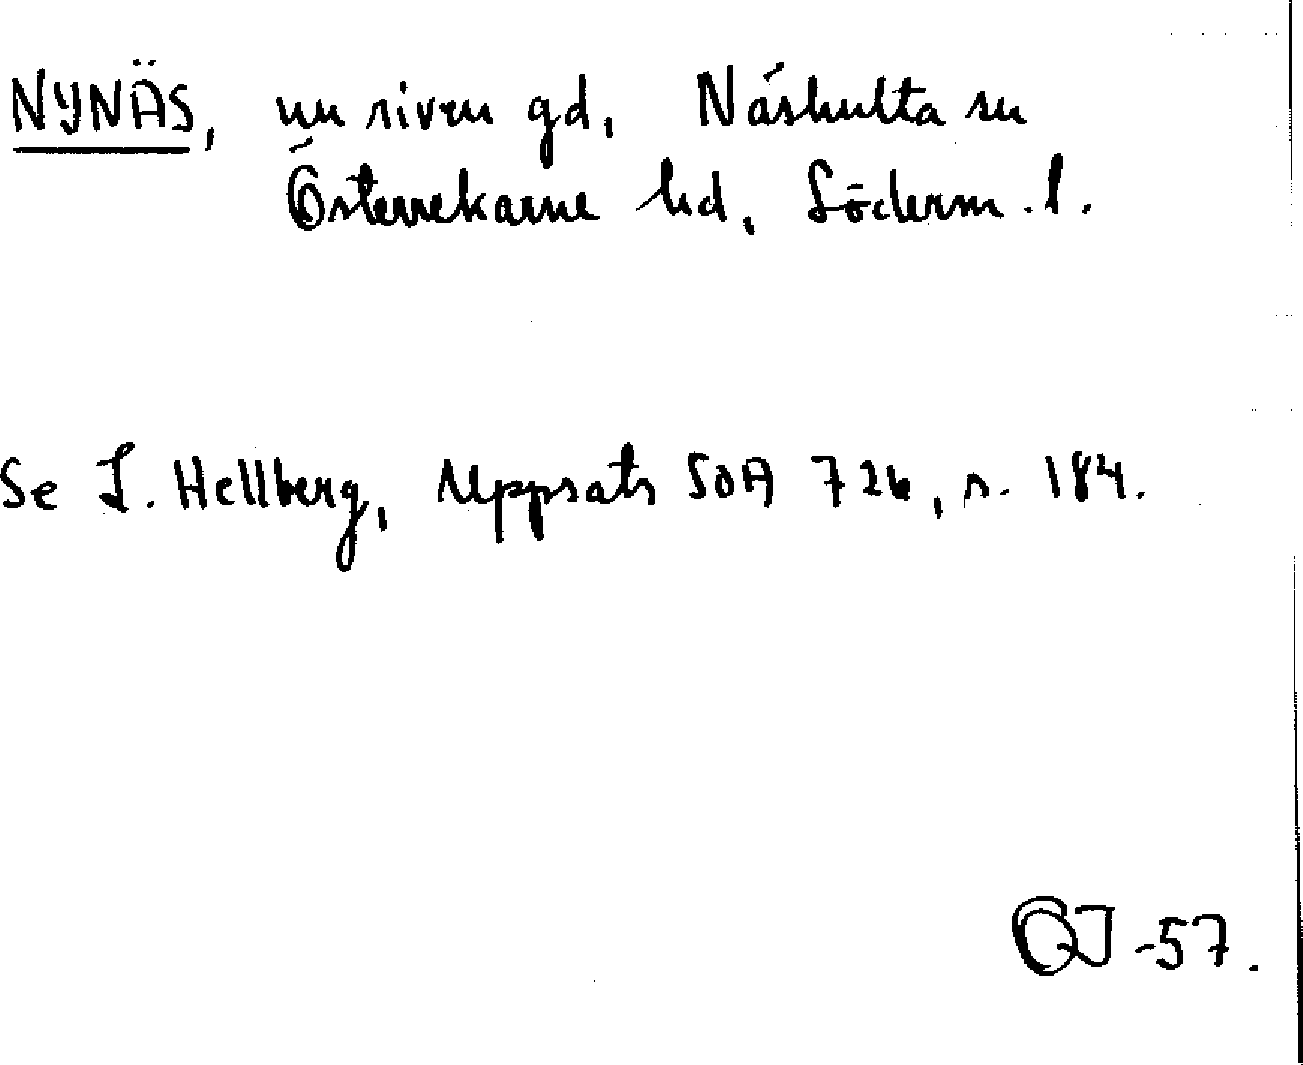 NYNÄS, nu riven gd, Näshulta sn
Österrekarne hd, Söderm. l.
Se L. Hellberg, Uppsats SOA 726, s. 184.
-57.